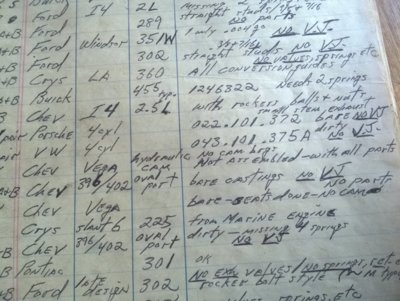 Ford I4 2L straight
Ford 289 NO parts
A+B Ford Windsor 351W 1 only .004/90 NO VJ
Ford 302 straight studs NO VALVES, springs, etc
A+B Crys LA 360 All conversion guides
Buick 455 1246322 Need 2 springs
Chev I4 2.5L with rockers balls + nuts
pair Porsche 4cyl 022.101.372 bare NO VJ
pair VW 4cyl 043.101.375A dirty NO VJ
Chev Vega hydraulic cam NO Cam brgs
A+B Chev 396/402 oval port Not Assembled - with all parts
Chev Vega bare castings NO VJ NO parts
Crys slant 6 225 bare - seats done - NO CAM
Chev 396/402 oval port from Marine Engine
dirty - missing 4 springs
NO VJ
Pontiac 301 OK
Ford late design 302 NO Exh valves / NO springs, ret etc
rocker bolt style